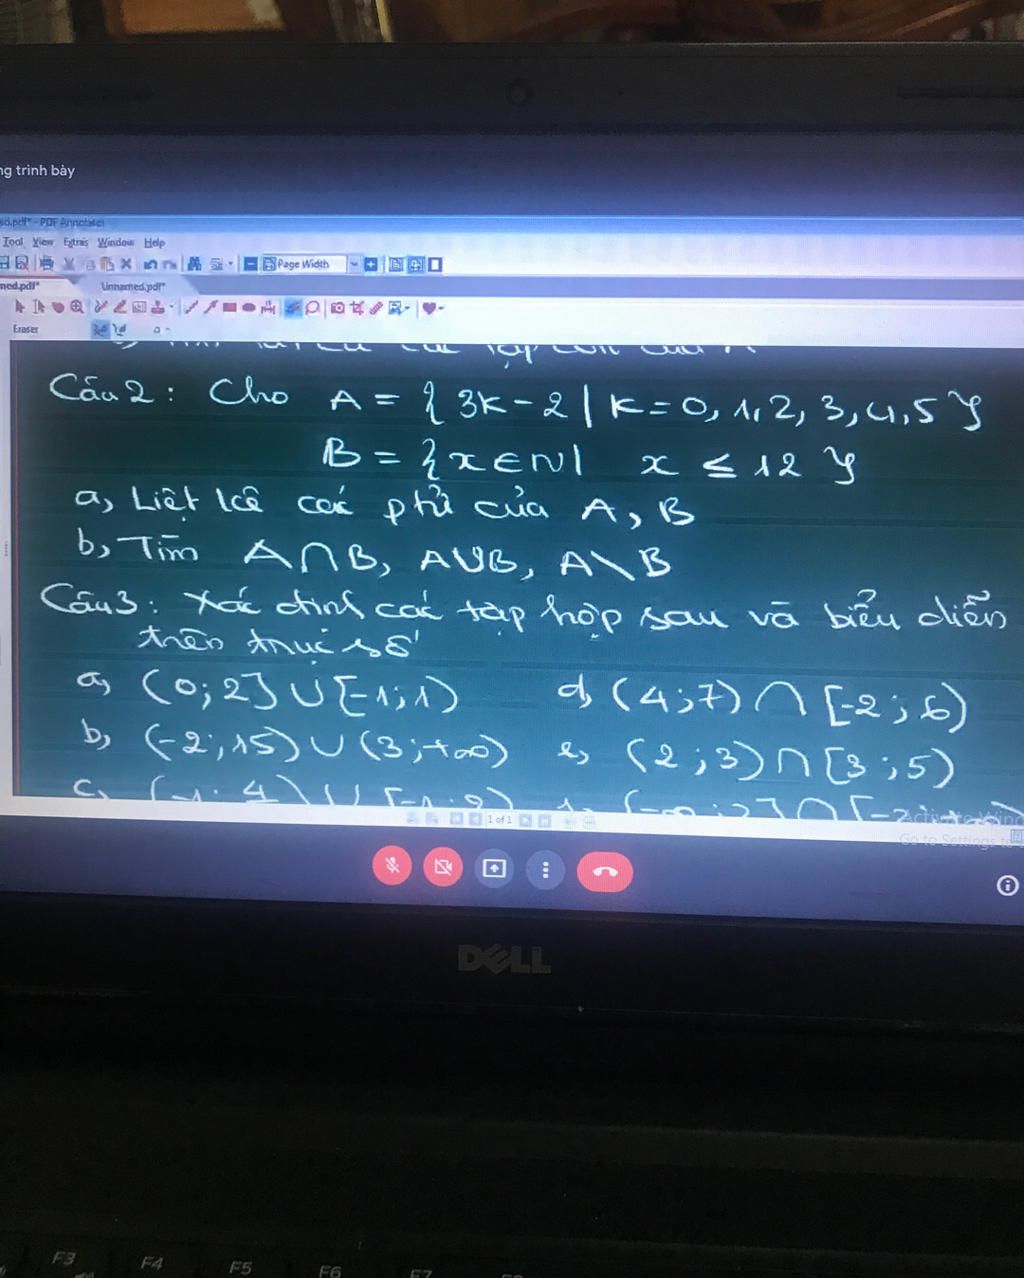 ng trình bày
sd.pdf* - PDF Annotator
Tool View Extras Window Help
Page Width
med.pdf* Unnamed.pdf*
Eraser
Câu 2: Cho A = { 3K - 2 | K = 0, 1, 2, 3, 4, 5 }
B = { x ∈ N | x ≤ 12 }
a, Liệt kê các ptử của A, B
b, Tìm A ∩ B, A ∪ B, A \ B
Câu 3: Xác định các tập hợp sau và biểu diễn
trên trục số
a, (0; 2] ∪ [-1; 1) d, (4; 7) ∩ [-2; 6)
b, (-2; 15) ∪ (3; +∞) e, (2; 3) ∩ [3; 5)
1 of 1
Go to Settings to
DELL
F3 F4 F5 F6 F7